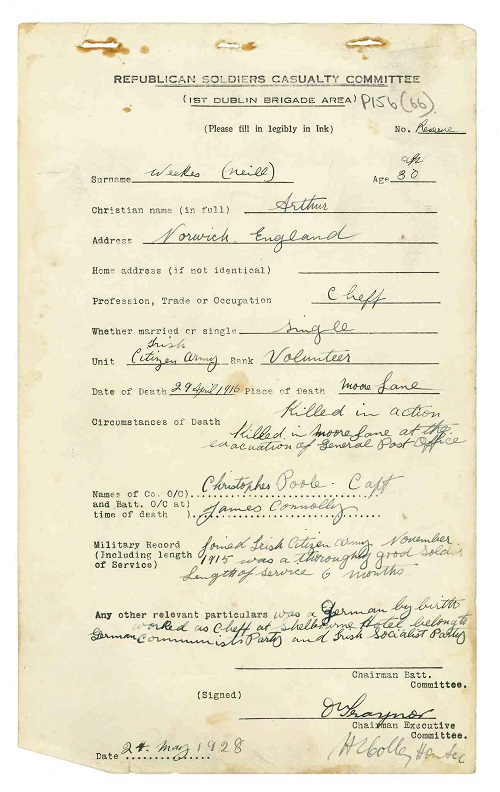 REPUBLICAN SOLDIERS CASUALTY COMMITTEE
(1ST DUBLIN BRIGADE AREA) P156(66)
(Please fill in legibly in Ink) No. Reserve
Surname Weekes (Neill) Age apx 30
Christian name (in full) Arthur
Address Norwich. England
Home address (if not identical)
Profession, Trade or Occupation Cheff
Whether married or single single
Unit Irish Citizen Army Rank Volunteer
Date of Death 29 April 1916 Place of Death Moore Lane
Circumstances of Death Killed in action
Killed in Moore Lane at the
evacuation of General Post Office
Names of Co. O/C) Christopher Poole. Capt
and Batt. O/C at)
time of death ) James Connolly
Military Record Joined Irish Citizen Army November
(Including length 1915 was a thoroughly good Soldier
of Service) Length of Service 6 months
Any other relevant particulars was a German by birth
worked as Cheff at Shelbourne Hotel belong to
German Communists Party and Irish Socialist Party
Chairman Batt.
Committee.
(Signed)
O Traynor
Chairman Executive
Committee.
Date 24. May 1928 H Colley Hon Sec